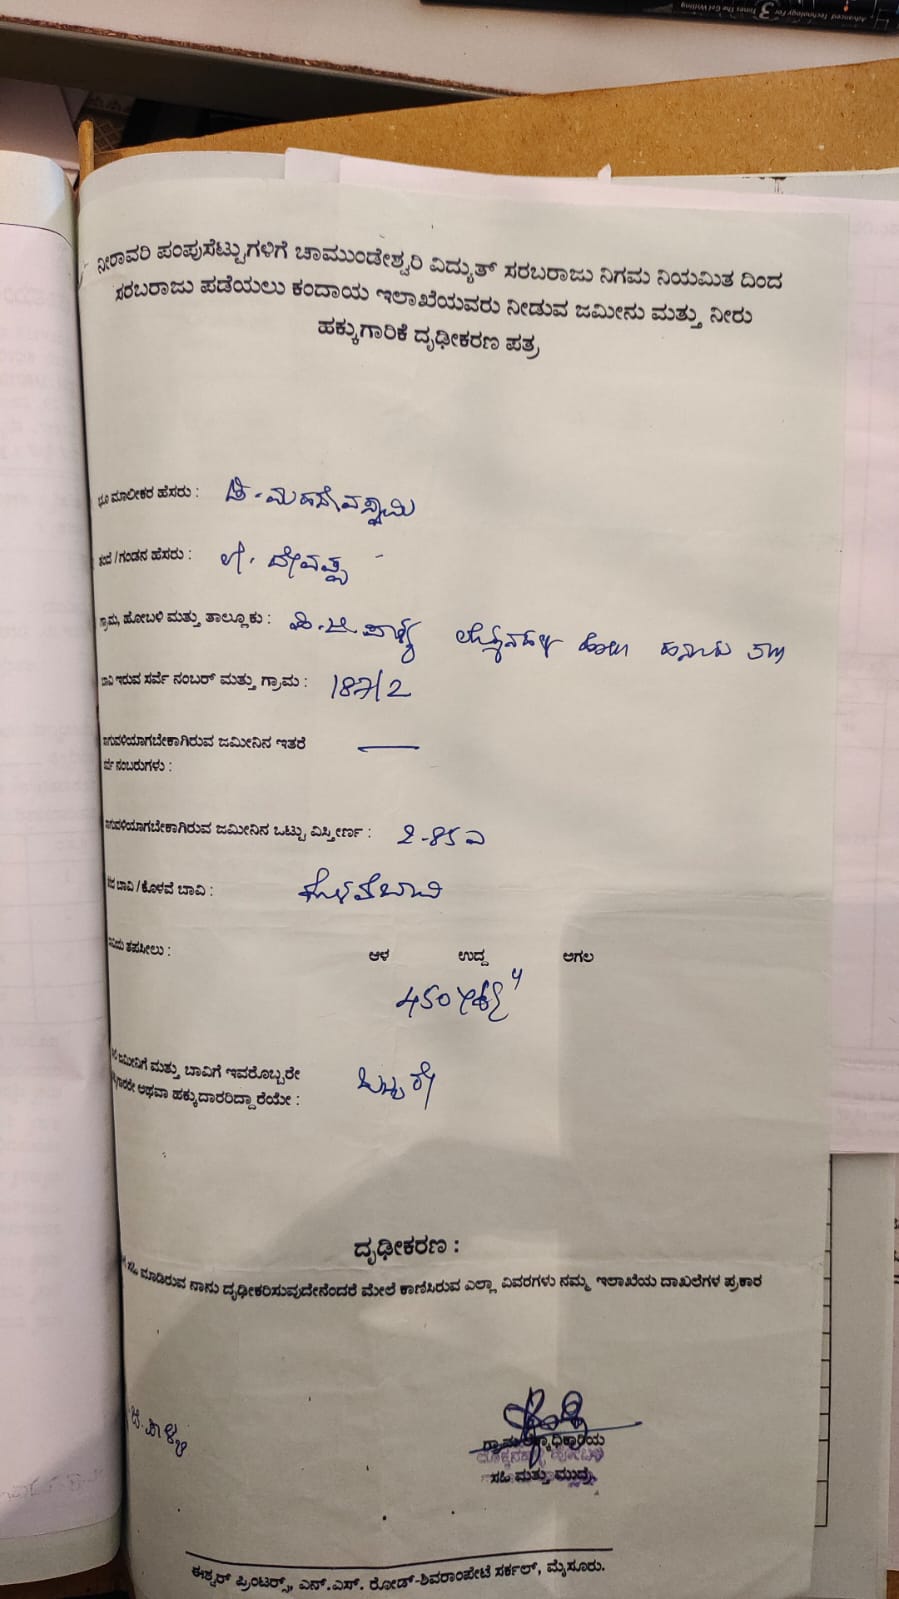 ನೀರಾವರಿ ಪಂಪುಸೆಟ್ಟುಗಳಿಗೆ ಚಾಮುಂಡೇಶ್ವರಿ ವಿದ್ಯುತ್ ಸರಬರಾಜು ನಿಗಮ ನಿಯಮಿತ ದಿಂದ
ಸರಬರಾಜು ಪಡೆಯಲು ಕಂದಾಯ ಇಲಾಖೆಯವರು ನೀಡುವ ಜಮೀನು ಮತ್ತು ನೀರು
ಹಕ್ಕುಗಾರಿಕೆ ದೃಢೀಕರಣ ಪತ್ರ
ಮಾಲೀಕರ ಹೆಸರು : ಡಿ. ಮಹದೇವಸ್ವಾಮಿ
/ಗಂಡನ ಹೆಸರು : ಲೇ. ದೇವಪ್ಪ
ಗ್ರಾಮ, ಹೋಬಳಿ ಮತ್ತು ತಾಲ್ಲೂಕು : ಪಿ.ಜಿ.ಪಾಳ್ಯ ಲೊಕ್ಕನಹಳ್ಳಿ ಹೋಬಳಿ ಹನೂರು ತಾ||
ಇರುವ ಸರ್ವೆ ನಂಬರ್ ಮತ್ತು ಗ್ರಾಮ : 187/2
ಜಮೀನಿನ ಇತರೆ
ನಂಬರುಗಳು :
ಜಮೀನಿನ ಒಟ್ಟು ವಿಸ್ತೀರ್ಣ : 2-85 ಎ
ಬಾವಿ / ಕೊಳವೆ ಬಾವಿ : ಕೊಳವೆಬಾವಿ
ತಪಸೀಲು :
ಆಳ ಉದ್ದ ಅಗಲ
450
ಜಮೀನಿಗೆ ಮತ್ತು ಬಾವಿಗೆ ಇವರೊಬ್ಬರೇ
ಅಥವಾ ಹಕ್ಕುದಾರರಿದ್ದಾರೆಯೇ : ಒಬ್ಬರೇ
ದೃಢೀಕರಣ :
ಸಹಿ ಮಾಡಿರುವ ನಾನು ದೃಢೀಕರಿಸುವುದೇನೆಂದರೆ ಮೇಲೆ ಕಾಣಿಸಿರುವ ಎಲ್ಲಾ ವಿವರಗಳು ನಮ್ಮ ಇಲಾಖೆಯ ದಾಖಲೆಗಳ ಪ್ರಕಾರ
ಜಿ.ಪಾಳ್ಯ
ಸಹಿ ಮತ್ತು ಮುದ್ರೆ
ಈಶ್ವರ್ ಪ್ರಿಂಟರ್ಸ್, ಎನ್.ಎಸ್. ರೋಡ್-ಶಿವರಾಂಪೇಟೆ ಸರ್ಕಲ್, ಮೈಸೂರು.